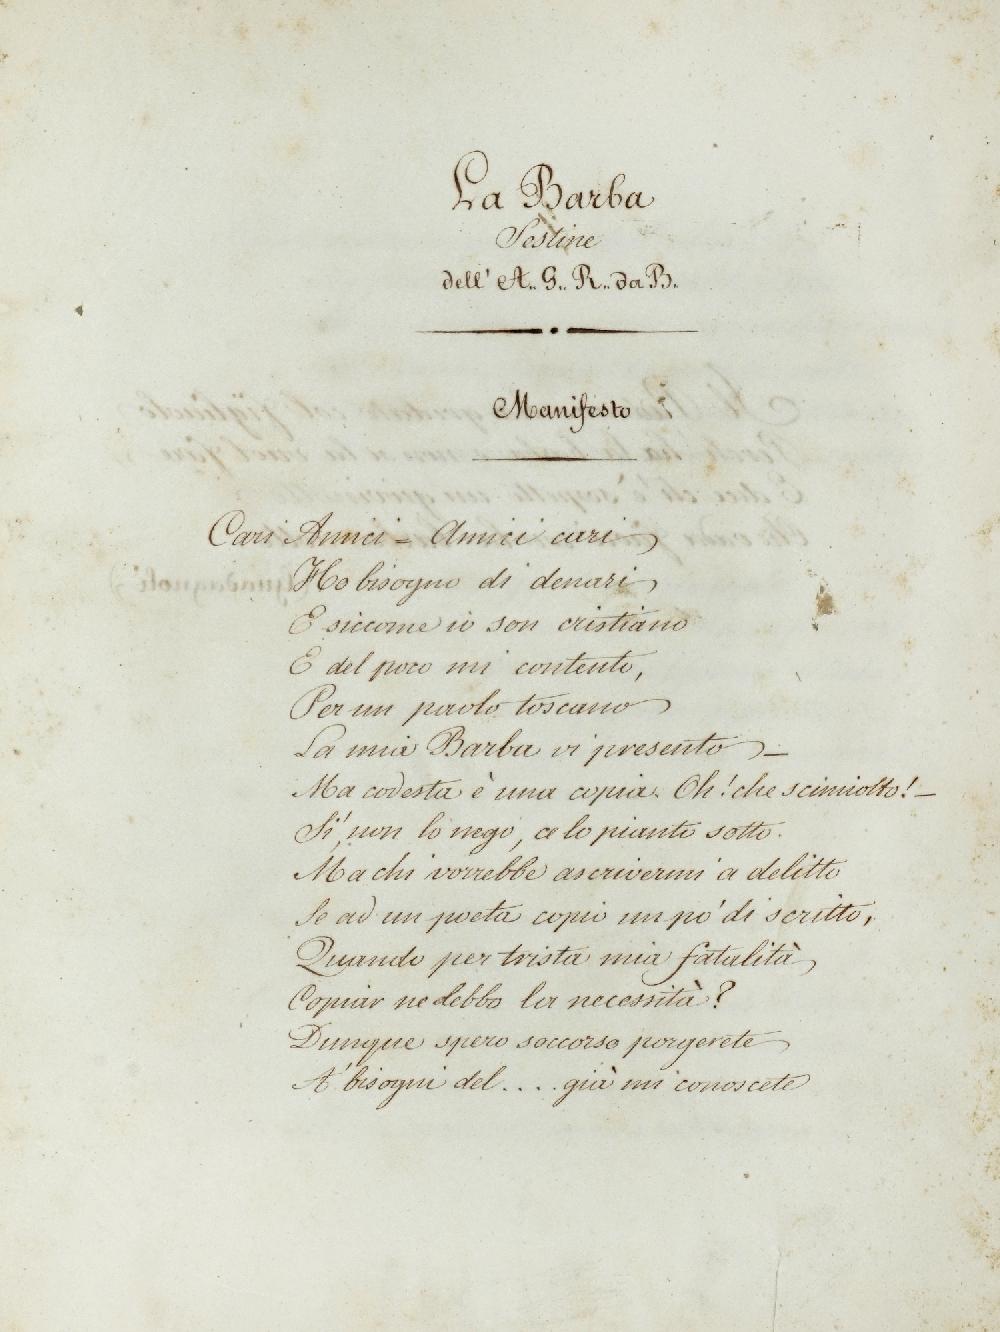 La Barba
Sestine
dell' A.. G.. R.. da B.
Manifesto
Cari Amici – Amici cari
Ho bisogno di denari
E siccome io son cristiano
E del poco mi contento,
Per un paolo toscano
La mia Barba vi presento –
Ma codesta è una copia. Oh! che scimiotto! –
Sì, non lo nego, ce lo pianto sotto.
Ma chi vorrebbe ascrivermi a delitto
Se ad un poeta copio un po' di scritto,
Quando per trista mia fatalità
Copiar ne debbo la necessità?
Dunque spero soccorso porgerete
A' bisogni del . . . . già mi conoscete